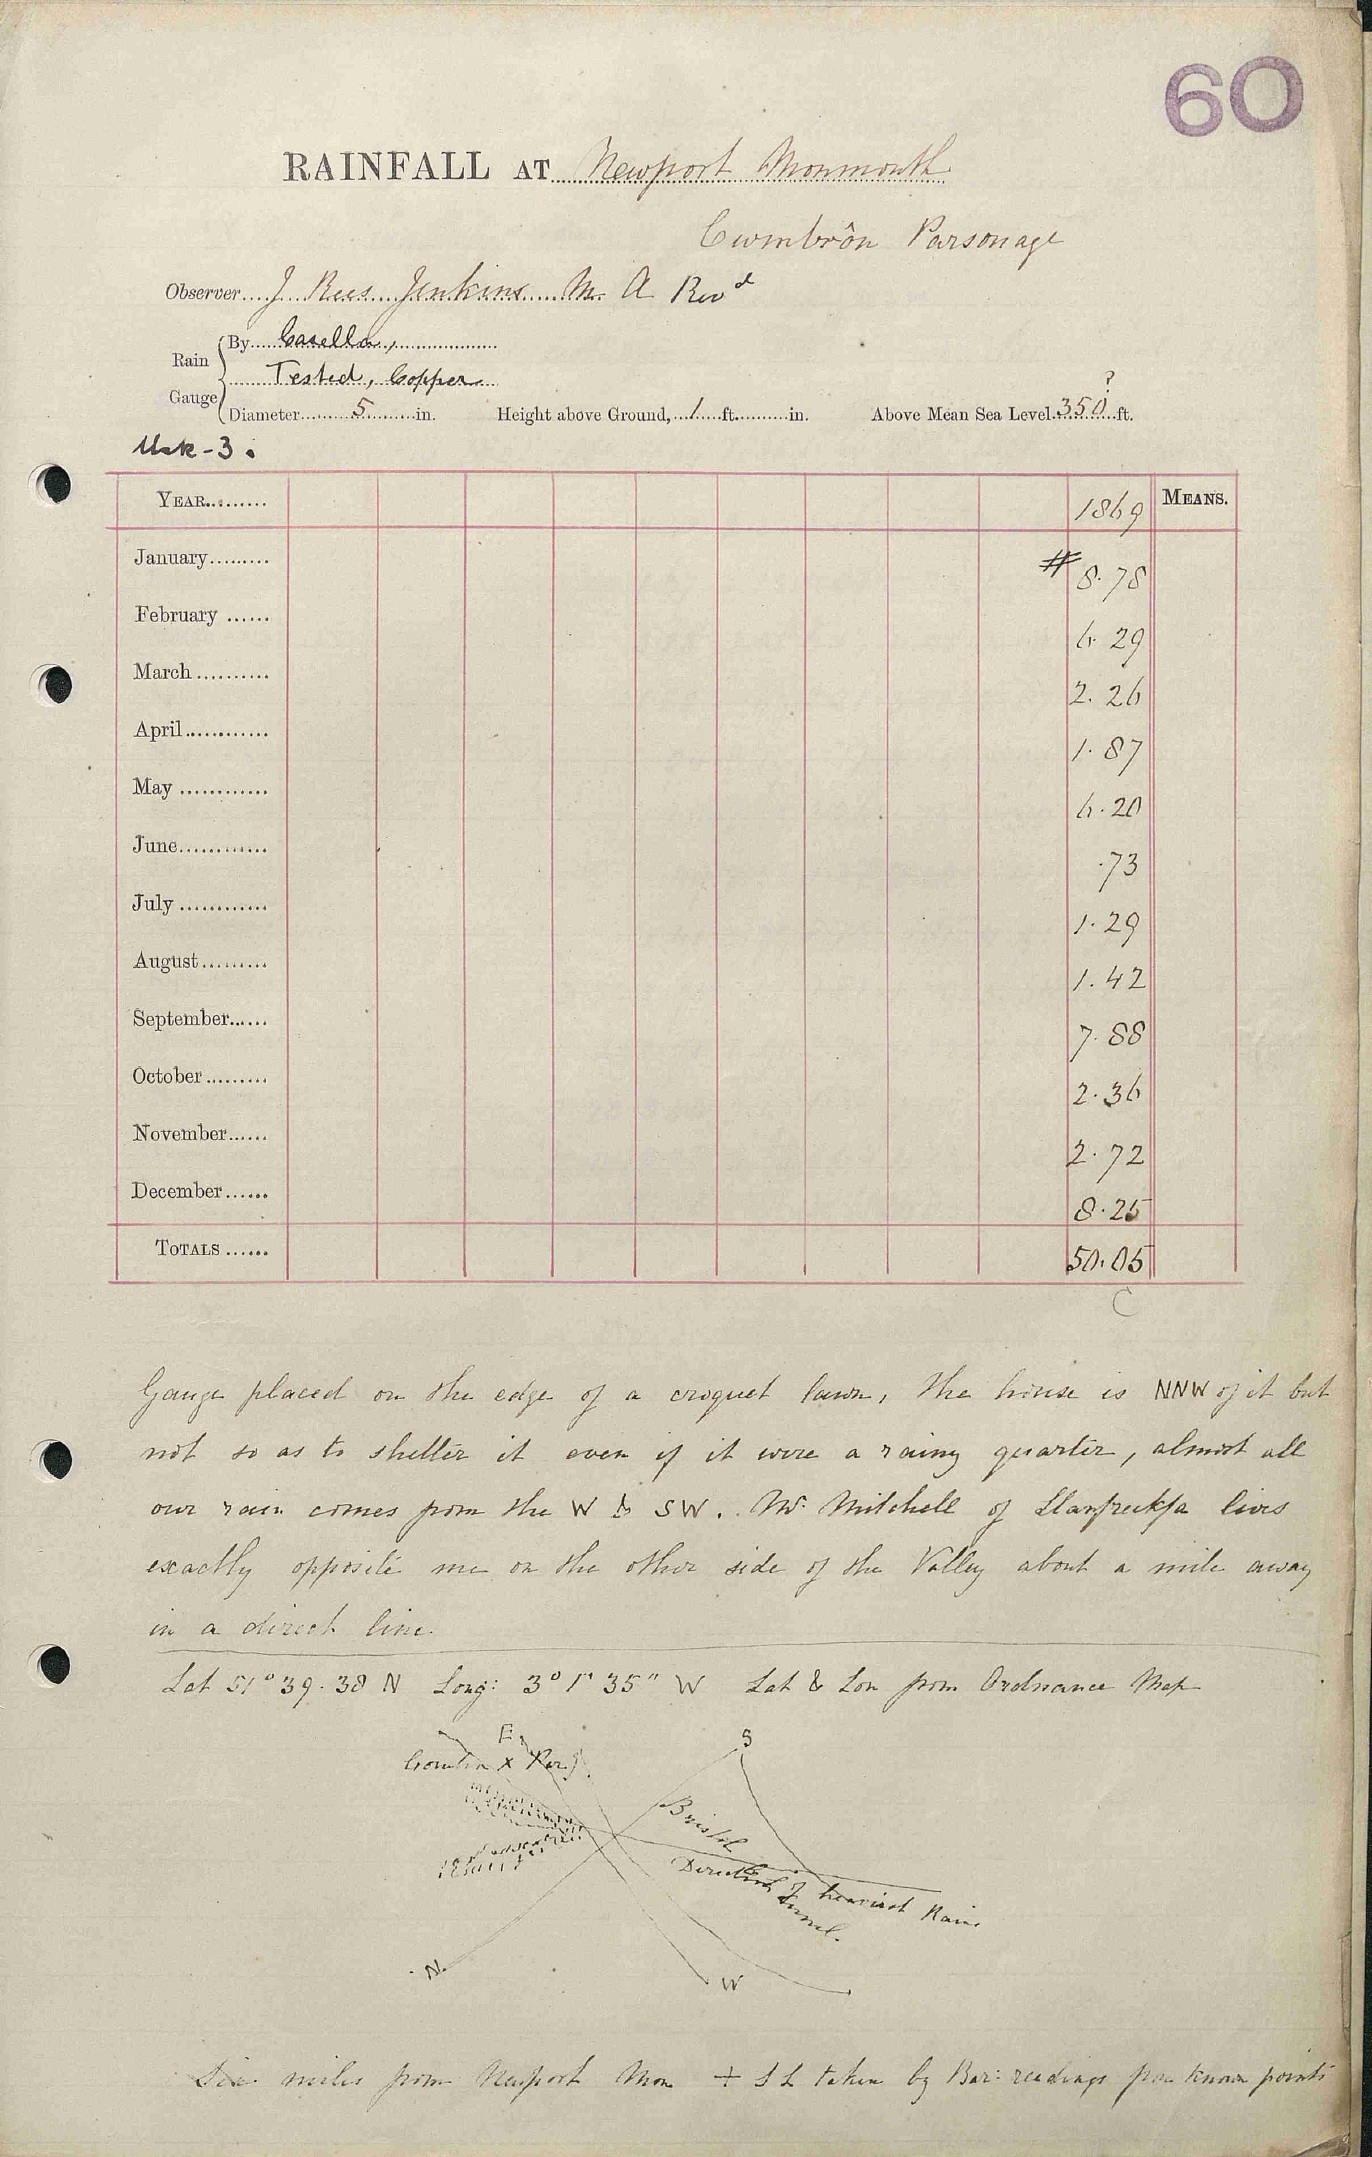 60
RAINFALL AT Newport Monmouth
Cwmbrôn Parsonage
Observer J Rees Jenkins M. A Revd
Rain Gauge By Casella,
Tested, Copper
Diameter 5 in. Height above Ground, 1 ft. in. Above Mean Sea Level 350 ? ft.
Usk - 3.
YEAR 1869 MEANS.
January # 8.78
February 6.29
March 2.26
April 1.87
May 6.20
June .73
July 1.29
August 1.42
September 7.88
October 2.36
November 2.72
December 8.25
TOTALS 50.05
C
Gauge placed on the edge of a croquet lawn, the house is NNW of it but
not so as to shelter it even if it were a rainy quarter, almost all
our rain comes from the W & SW. Mr. Mitchell of Llanfreckfa lives
exactly opposite me on the other side of the Valley about a mile away
in a direct line.
Lat 51° 39. 38 N Long: 3° 1' 35" W Lat & Lon from Ordnance Map
E
S
x
Bristol
Direction of heaviest Rain
N
W
Six miles from Newport Mon + S L taken by Bar: readings from known points